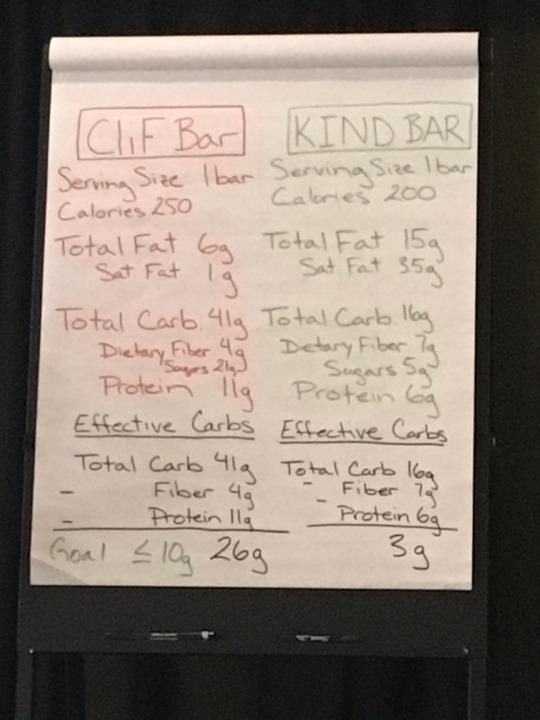 CLIF Bar
Serving Size 1 bar
Calories 250
Total Fat 6g
Sat Fat 1g
Total Carb. 41g
Dietary Fiber 4g
Sugars 21g
Protein 11g
Effective Carbs
Total Carb 41g
- Fiber 4g
- Protein 11g
Goal ≤10g 26g
KIND BAR
Serving Size 1 bar
Calories 200
Total Fat 15g
Sat Fat 35g
Total Carb. 16g
Dietary Fiber 7g
Sugars 5g
Protein 6g
Effective Carbs
Total Carb 16g
- Fiber 7g
- Protein 6g
3g